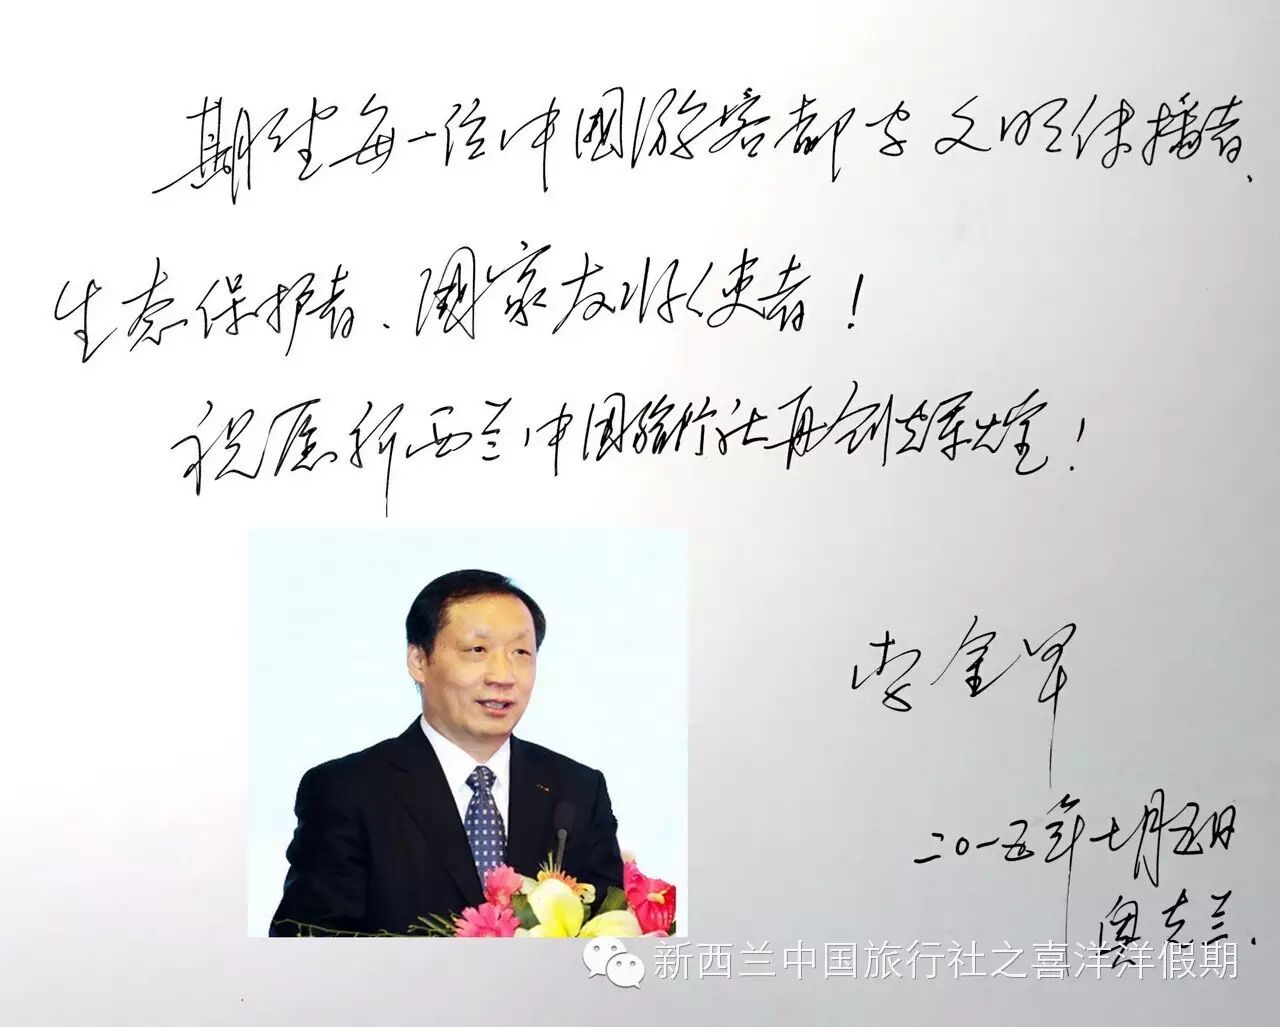 期望每一位中国游客都字文明传播者、
生态保护者、国家友好使者！
祝愿新西兰中国旅行社再创辉煌！
李金早
二〇一五年七月五日
奥克兰.
新西兰中国旅行社之喜洋洋假期